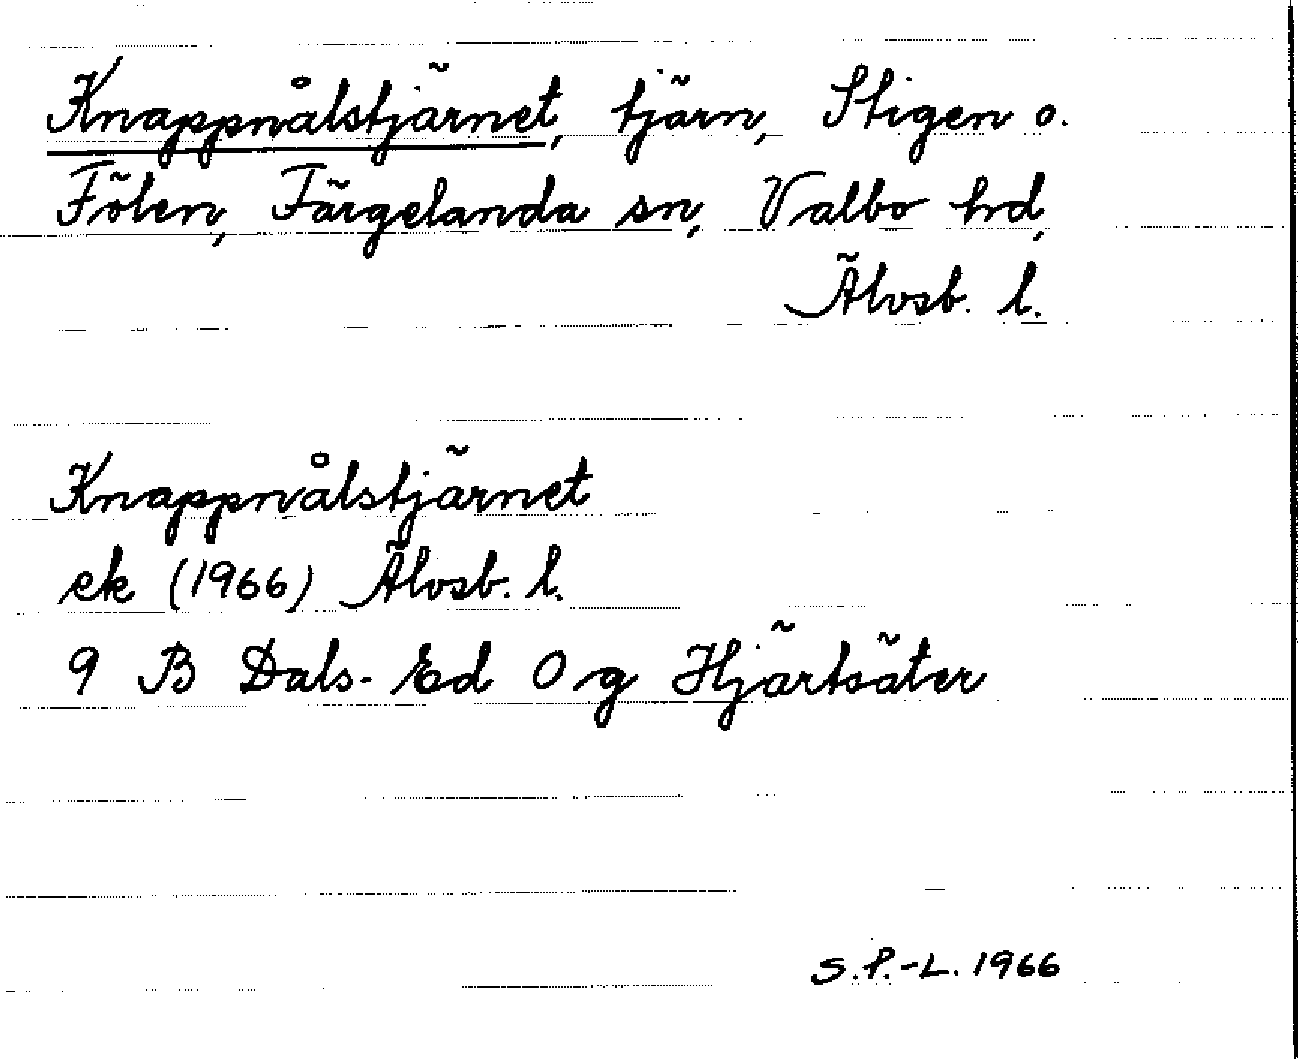 Knappnålstjärnet, tjärn, Stigen o.
Fölen, Färgelanda sn, Valbo hd,
Älvsb. l.
Knappnålstjärnet
ek (1966) Älvsb. l.
9 B Dals-Ed 0 g Hjärtsäter
S.P.-L. 1966